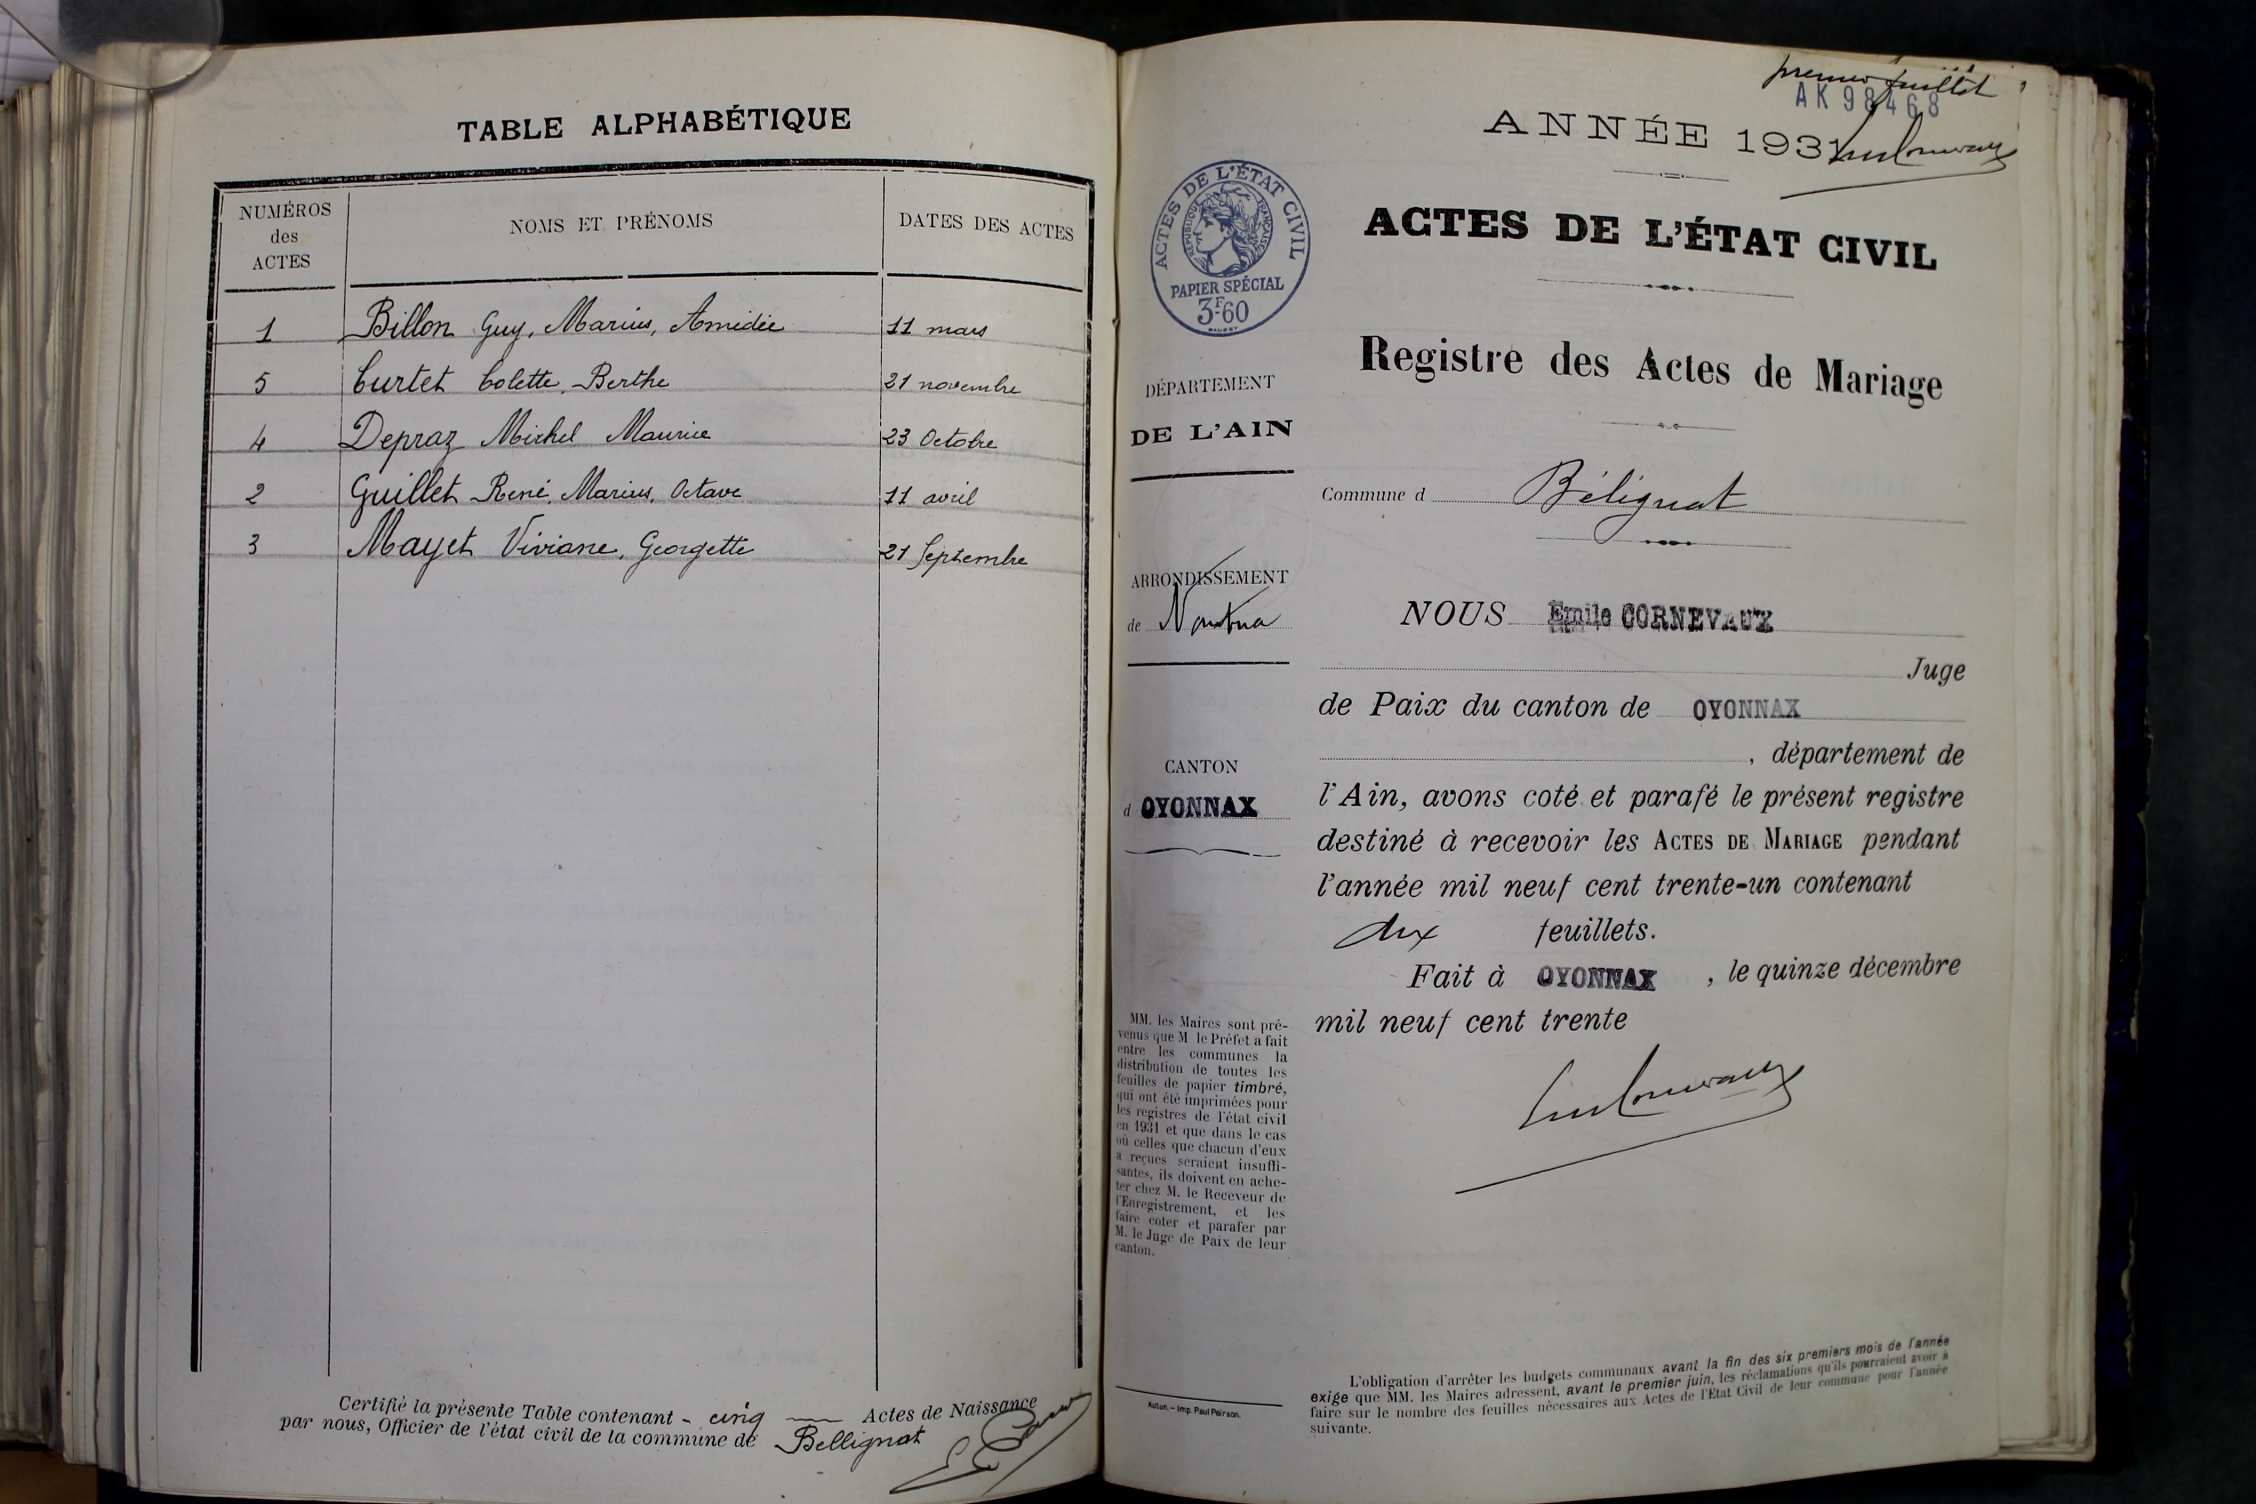 TABLE ALPHABÉTIQUE
NUMÉROS
des
ACTES
NOMS ET PRÉNOMS
DATES DES ACTES
1 Billon Guy, Marius, Amédée 11 mars
5 Curtet Colette, Berthe 21 novembre
4 Depraz Michel Maurice 23 Octobre
2 Guillet René, Marius, Octave 11 avril
3 Mayet Viviane, Georgette 21 Septembre
Certifié la présente Table contenant - cinq — Actes de Naissance
par nous, Officier de l'état civil de la commune de Bellignat
premier feuillet
AK 98468
ANNÉE 1931
ACTES DE L'ÉTAT CIVIL
RÉPUBLIQUE FRANÇAISE
PAPIER SPÉCIAL
3F.60
ACTES DE L'ÉTAT CIVIL
Registre des Actes de Mariage
DÉPARTEMENT
DE L'AIN
Commune d Bélignat
ARRONDISSEMENT
de Nantua
CANTON
d OYONNAX
NOUS Emile CORNEVAUX
Juge
de Paix du canton de OYONNAX
, département de
l'Ain, avons coté et parafé le présent registre
destiné à recevoir les ACTES DE MARIAGE pendant
l'année mil neuf cent trente-un contenant
dix feuillets.
Fait à OYONNAX , le quinze décembre
mil neuf cent trente
MM. les Maires sont pré-
venus que M le Préfet a fait
entre les communes la
distribution de toutes les
feuilles de papier timbré,
qui ont été imprimées pour
les registres de l'état civil
en 1931 et que dans le cas
où celles que chacun d'eux
a reçues seraient insuffi-
santes, ils doivent en ache-
ter chez M. le Receveur de
l'Enregistrement, et les
faire coter et parafer par
M. le Juge de Paix de leur
canton.
Autun. — Imp. Paul Pairson.
L'obligation d'arrêter les budgets communaux avant la fin des six premiers mois de l'année
exige que MM. les Maires adressent, avant le premier juin, les réclamations qu'ils pourraient avoir à
faire sur le nombre des feuilles nécessaires aux Actes de l'Etat Civil de leur commune pour l'année
suivante.